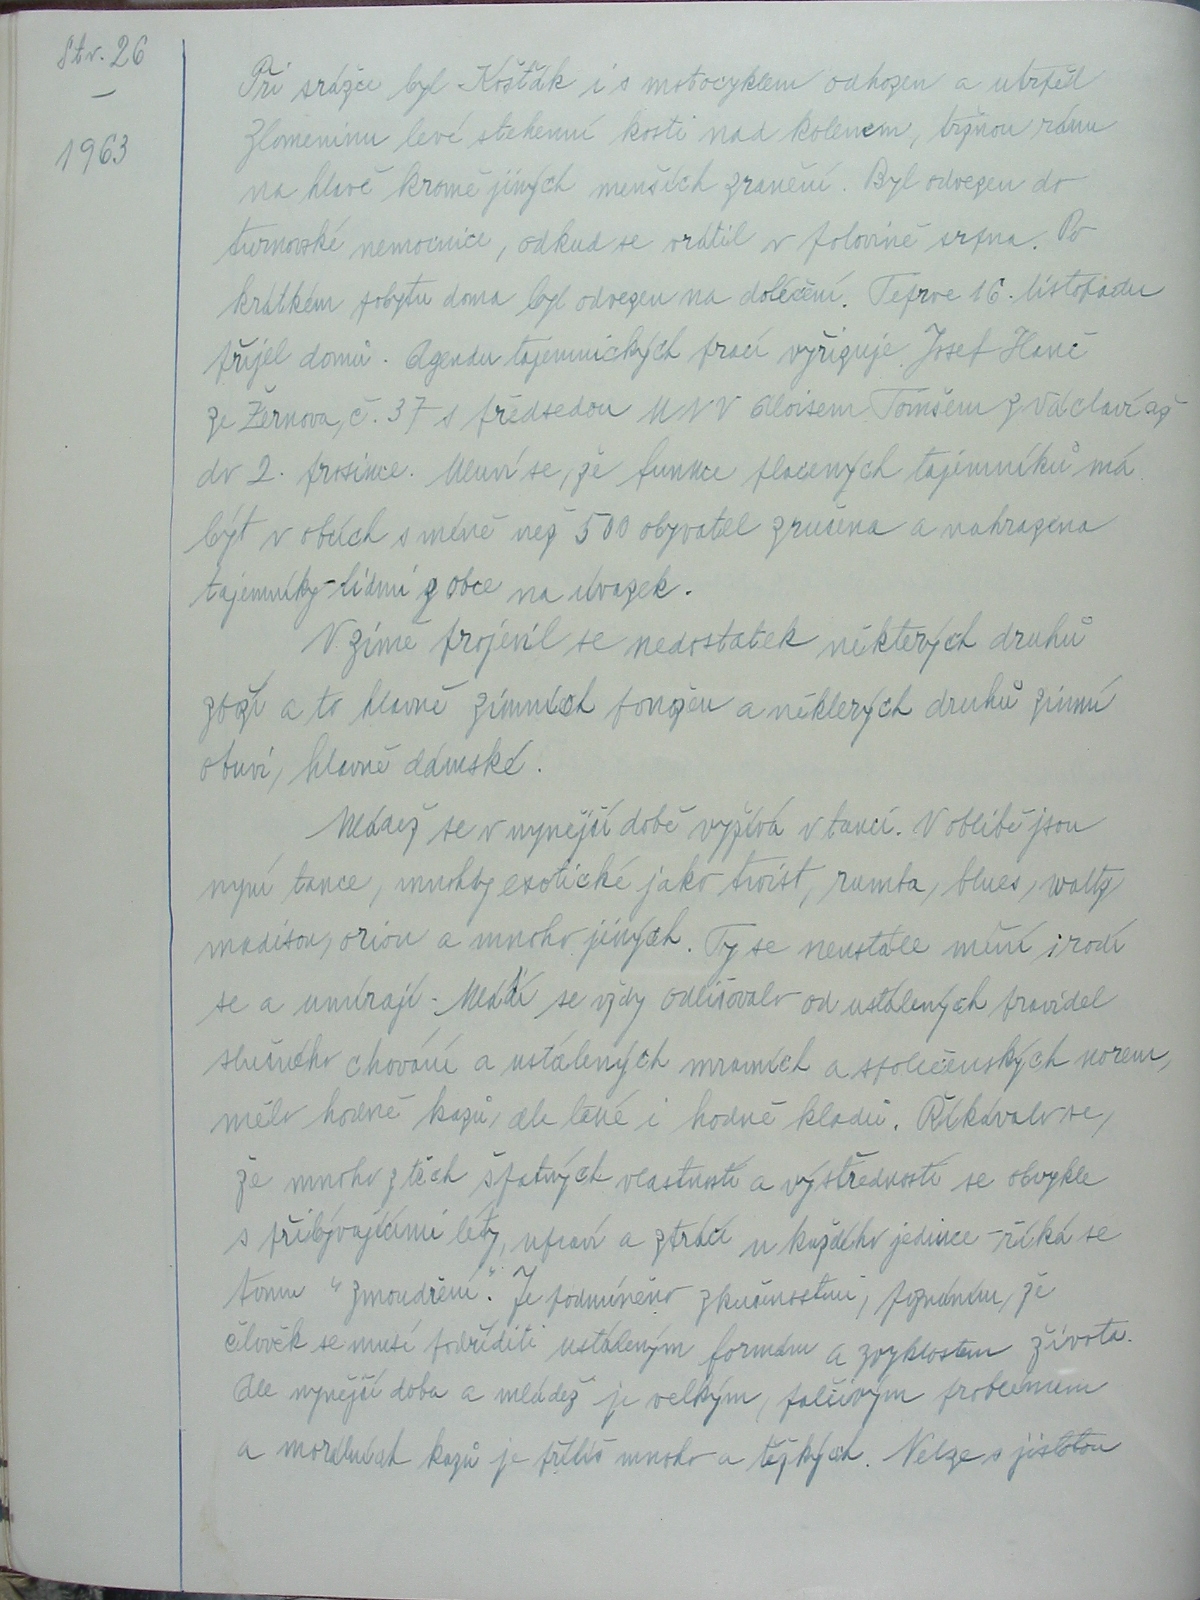 Str. 26
—
1963
Při srážce byl Košťák i s motocyklem odhozen a utrpěl
zlomeninu levé stehenní kosti nad kolenem, tržnou ránu
na hlavě kromě jiných menších zranění. Byl odvezen do
turnovské nemocnice, odkud se vrátil v polovině srpna. Po
krátkém pobytu doma byl odvezen na doléčení. Teprve 16. listopadu
přijel domů. Agendu tajemnických prací vyřizuje Josef Hanč
ze Žernova, č. 37 s předsedou MNV Aloisem Tomšem z Václaví až
do 2. prosince. Mluví se, že funkce placených tajemníků má
být v obcích s méně než 500 obyvatel zrušena a nahrazena
tajemníky-lidmi z obce na úvazek.
V zimě projevil se nedostatek některých druhů
zboží a to hlavně zimních ponožek a některých druhů zimní
obuvi, hlavně dámské.
Mládež se v nynější době vyžívá v tanci. V oblibě jsou
nyní tance, mnohdy exotické jako twist, rumba, blues, waltz
madison, orion a mnoho jiných. Ty se neustále mění, rodí
se a umírají - Mládí se vždy odlišovalo od ustálených pravidel
slušného chování a ustálených mravních a společenských norem,
mělo hodně kazů, ale také i hodně kladů. Říkávalo se,
že mnoho z těch špatných vlastností a výstředností se obvykle
s přibývajícími léty, upraví a ztrácí u každého jedince - říká se
tomu "zmoudření". Je podmíněno zkušenostmi, poznáním, že
člověk se musí podřídit ustáleným formám a zvyklostem života.
Ale nynější doba a mládež je velkým, palčivým problémem
a morálních kazů je příliš mnoho a těžkých. Nelze s jistotou